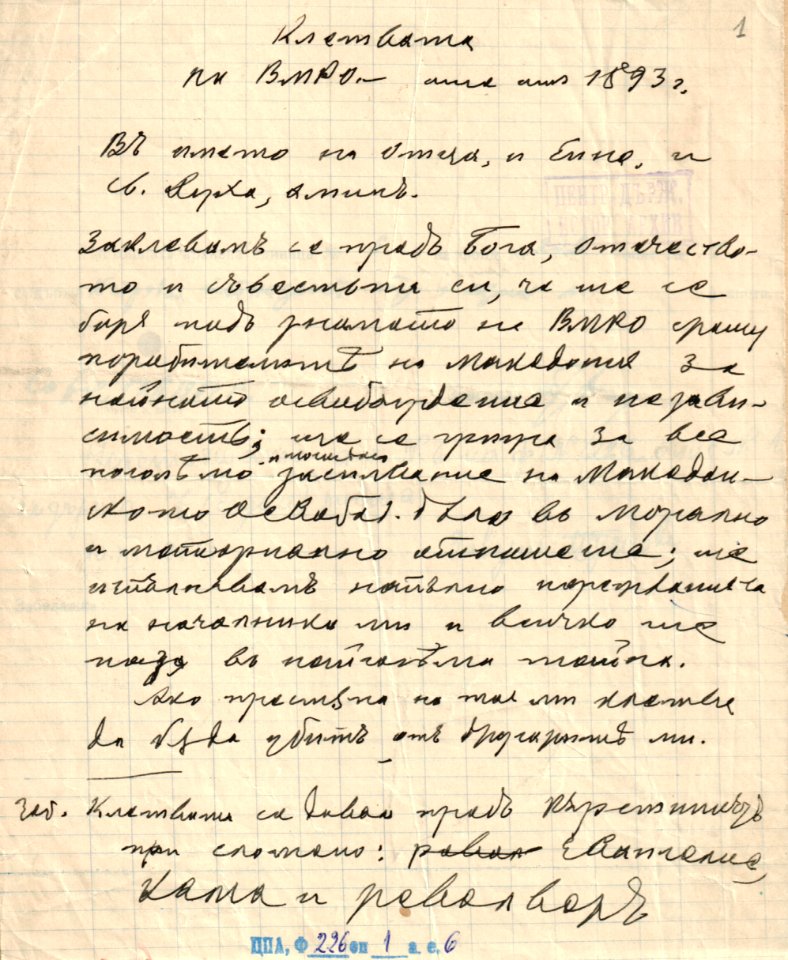 1
Клетвата
на ВМРО.— още отъ 1893 г.
Въ името на Отеца, и Сина, и
Св. Духа, аминъ.
ЦЕНТР. ДЪРЖ.
Заклевамъ се предъ Бога, отечество-
то и съвестьта си, че ще се
боря подъ знамето на ВМРО срещу
поробителитѣ на Македония за
нейното освобождение и незави-
симость; ще се грижа за все
по голѣмо засилвание на Македон-
ското Освобод. дѣло въ морално
и материално отношение; ще
изпълнявамъ напълно нарежданията
на началника ми и всичко ще
пазя въ най голѣма тайна.
Ако престѫпя на тая ми клетва
да бѫда убитъ отъ другаритѣ ми.
Заб. Клетвата се дава предъ кръстникътъ
при сложено: револ Евангелие,
Кама и револверъ
ЦПА, Ф 226 оп 1 а. е. 6